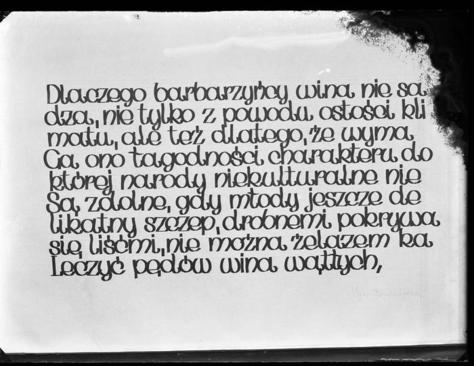 Dlaczego barbarzyńcy wina nie sa
dzą, nie tylko z powodu ostości kli
matu, ale też dlatego, że wyma
Ga ono łagodności charakteru do
której narody niekulturalne nie
Są zdolne, gdy młody jeszcze de
likatny szczep, drobnemi pokrywa
się liśćmi, nie można żelazem ka
Leczyć pędów wina wątłych,